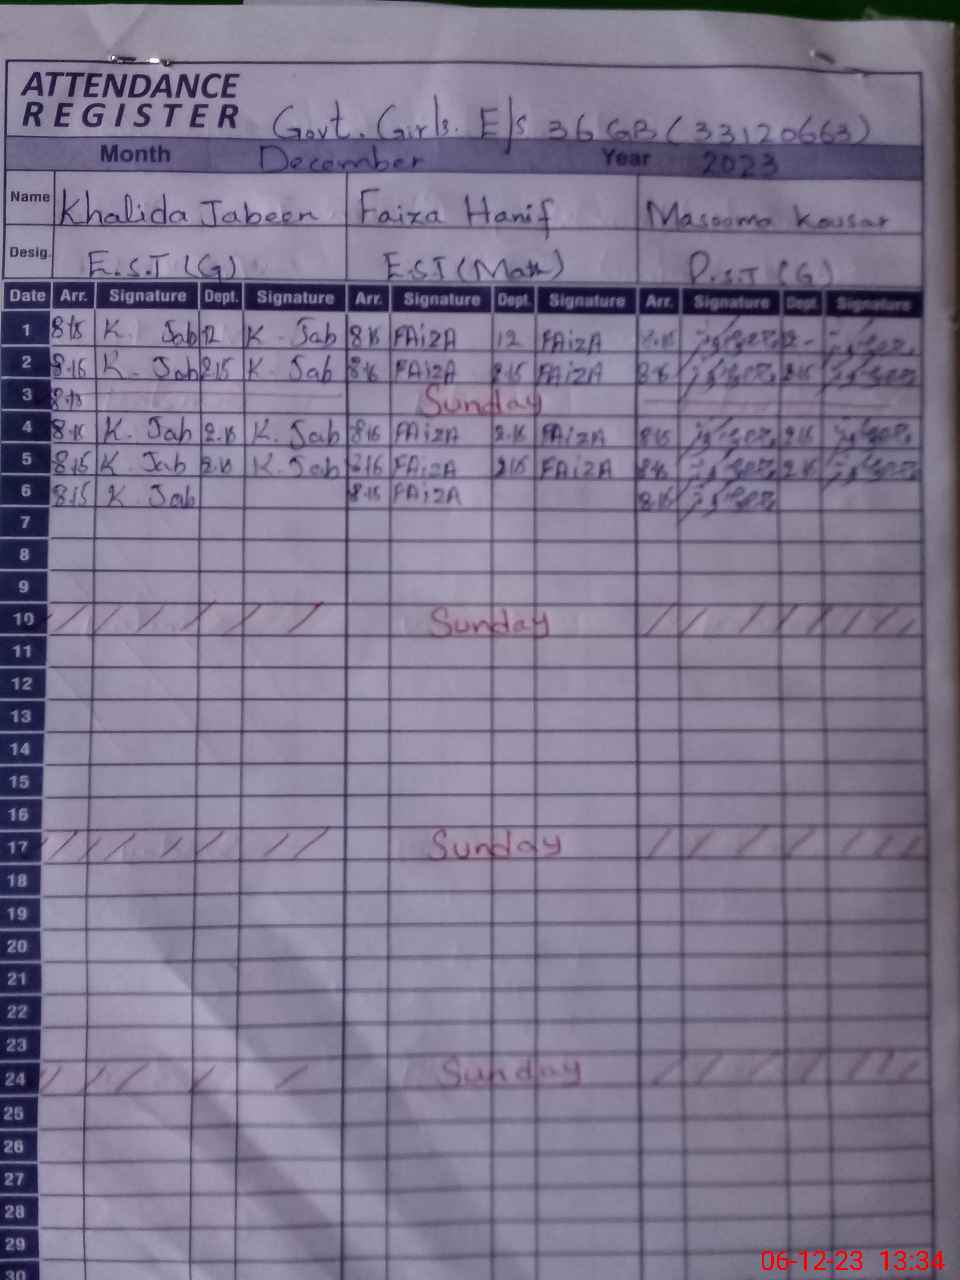 ATTENDANCE
REGISTER Govt. Girls. E/s 36 GB (33120663)
Month December Year 2023
Name Khalida Jabeen Faiza Hanif Masooma Kousar
Desig. E.S.T (G) E.S.T (Math) P.S.T (G)
Date Arr. Signature Dept. Signature Arr. Signature Dept. Signature Arr. Signature Dept. Signature
1 8:15 K. Jab 12 K. Jab 8:15 FAiZA 12 FAiZA
2 8.15 K. Jab 2:15 K. Jab FAiZA 2:15 FAiZA 2:15
3 Sunday
4 8.15 K. Jab 2.15 K. Jab 8:15 FAiZA 2.15 FAiZA 8:15 2:15
5 8.15 K. Jab 2.15 K. Jab FAiZA 2:15 FAiZA 2.15
6 8:15 K Jab 8.15 FAiZA 8.15
7
8
9
10 Sunday
11
12
13
14
15
16
17 Sunday
18
19
20
21
22
23
24 Sunday
25
26
27
28
29
30
06-12-23 13:34